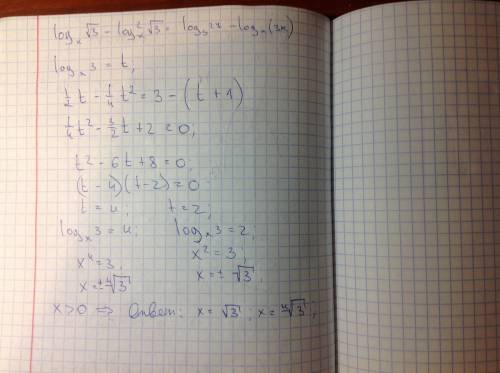 logₓ√3 - log²ₓ√3 = log₃27 - logₓ(3x)
logₓ3 = t;
½t - ¼t² = 3 - (t + 1)
¼t² - 3/2t + 2 = 0;
t² - 6t + 8 = 0;
(t - 4)(t - 2) = 0
t = 4; t = 2;
logₓ3 = 4; logₓ3 = 2;
x⁴ = 3; x² = 3;
x = ±⁴√3; x = ±√3;
x > 0 ⇒ Ответ: x = √3; x = ⁴√3;